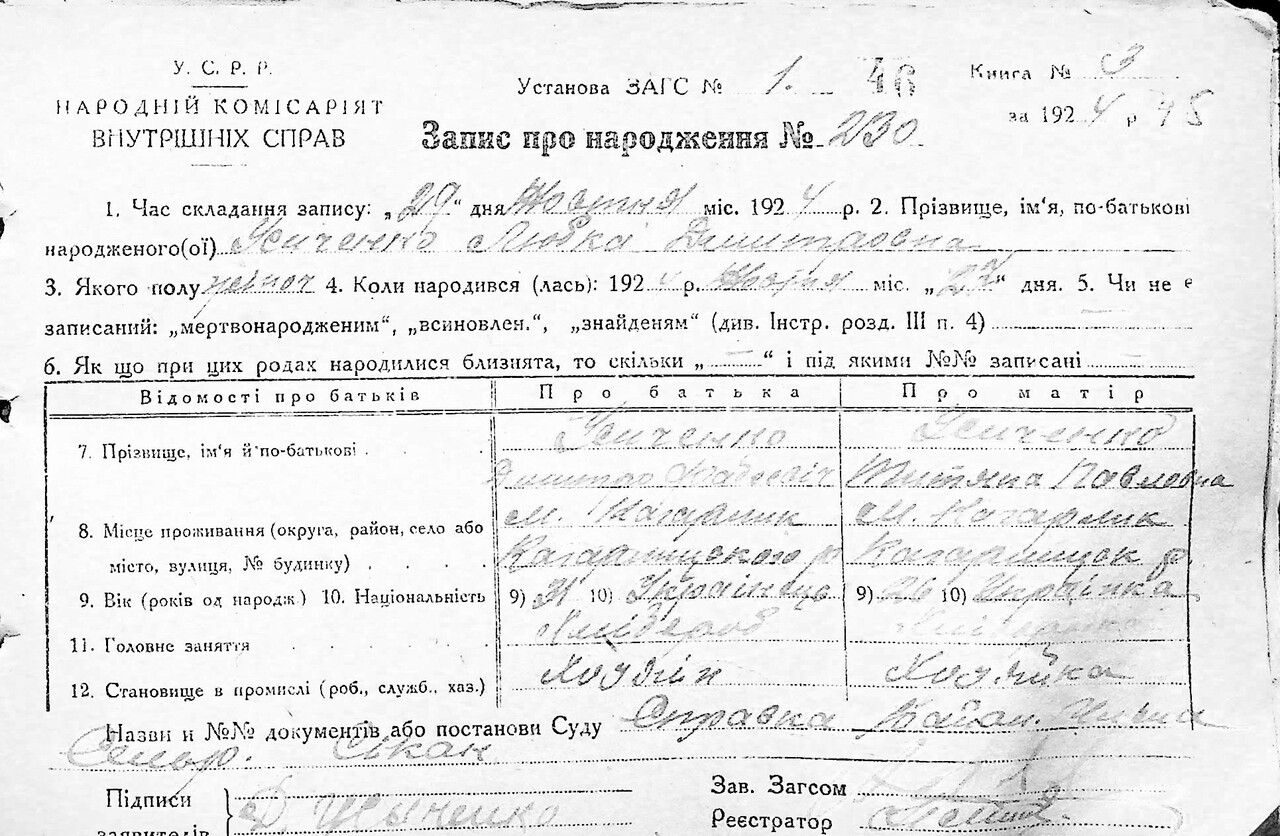 У. С. Р. Р.
НАРОДНІЙ КОМІСАРІЯТ
ВНУТРІШНІХ СПРАВ
Установа ЗАГС № 1. 46
Книга № 3
за 1924 р 45
Запис про народження № 230
1. Час складання запису: „29" дня Жовтня міс. 1924 р. 2. Прізвище, ім'я, по-батькові
народженого(ої) Любка Дмитровна
3. Якого полу жіноч 4. Коли народився (лась): 1924 р. міс. „23" дня. 5. Чи не є
записаний: „мертвонародженим", „всиновлен.", „знайденям" (див. Інстр. розд. III п. 4)
6. Як що при цих родах народилися близнята, то скільки „—" і під якими №№ записані —
Відомості про батьків Про батька Про матір
7. Прізвище, ім'я й по-батькові
Дмитро Титяна Павловна
м. Кагарлик м. Кагарлик
8. Місце проживання (округа, район, село або
місто, вулиця, № будинку) Кагарлицького р Кагарлицьк р.
9. Вік (років од народж.) 10. Національність 9) 31 10) Українець 9) 26 10) Українка
11. Головне заняття Хлібороб
12. Становище в промислі (роб., служб., хаз.) Хозяїн Хозяйка
Назви и №№ документів або постанови Суду Справка
Підписи
заявителів
Зав. Загсом
Реєстратор